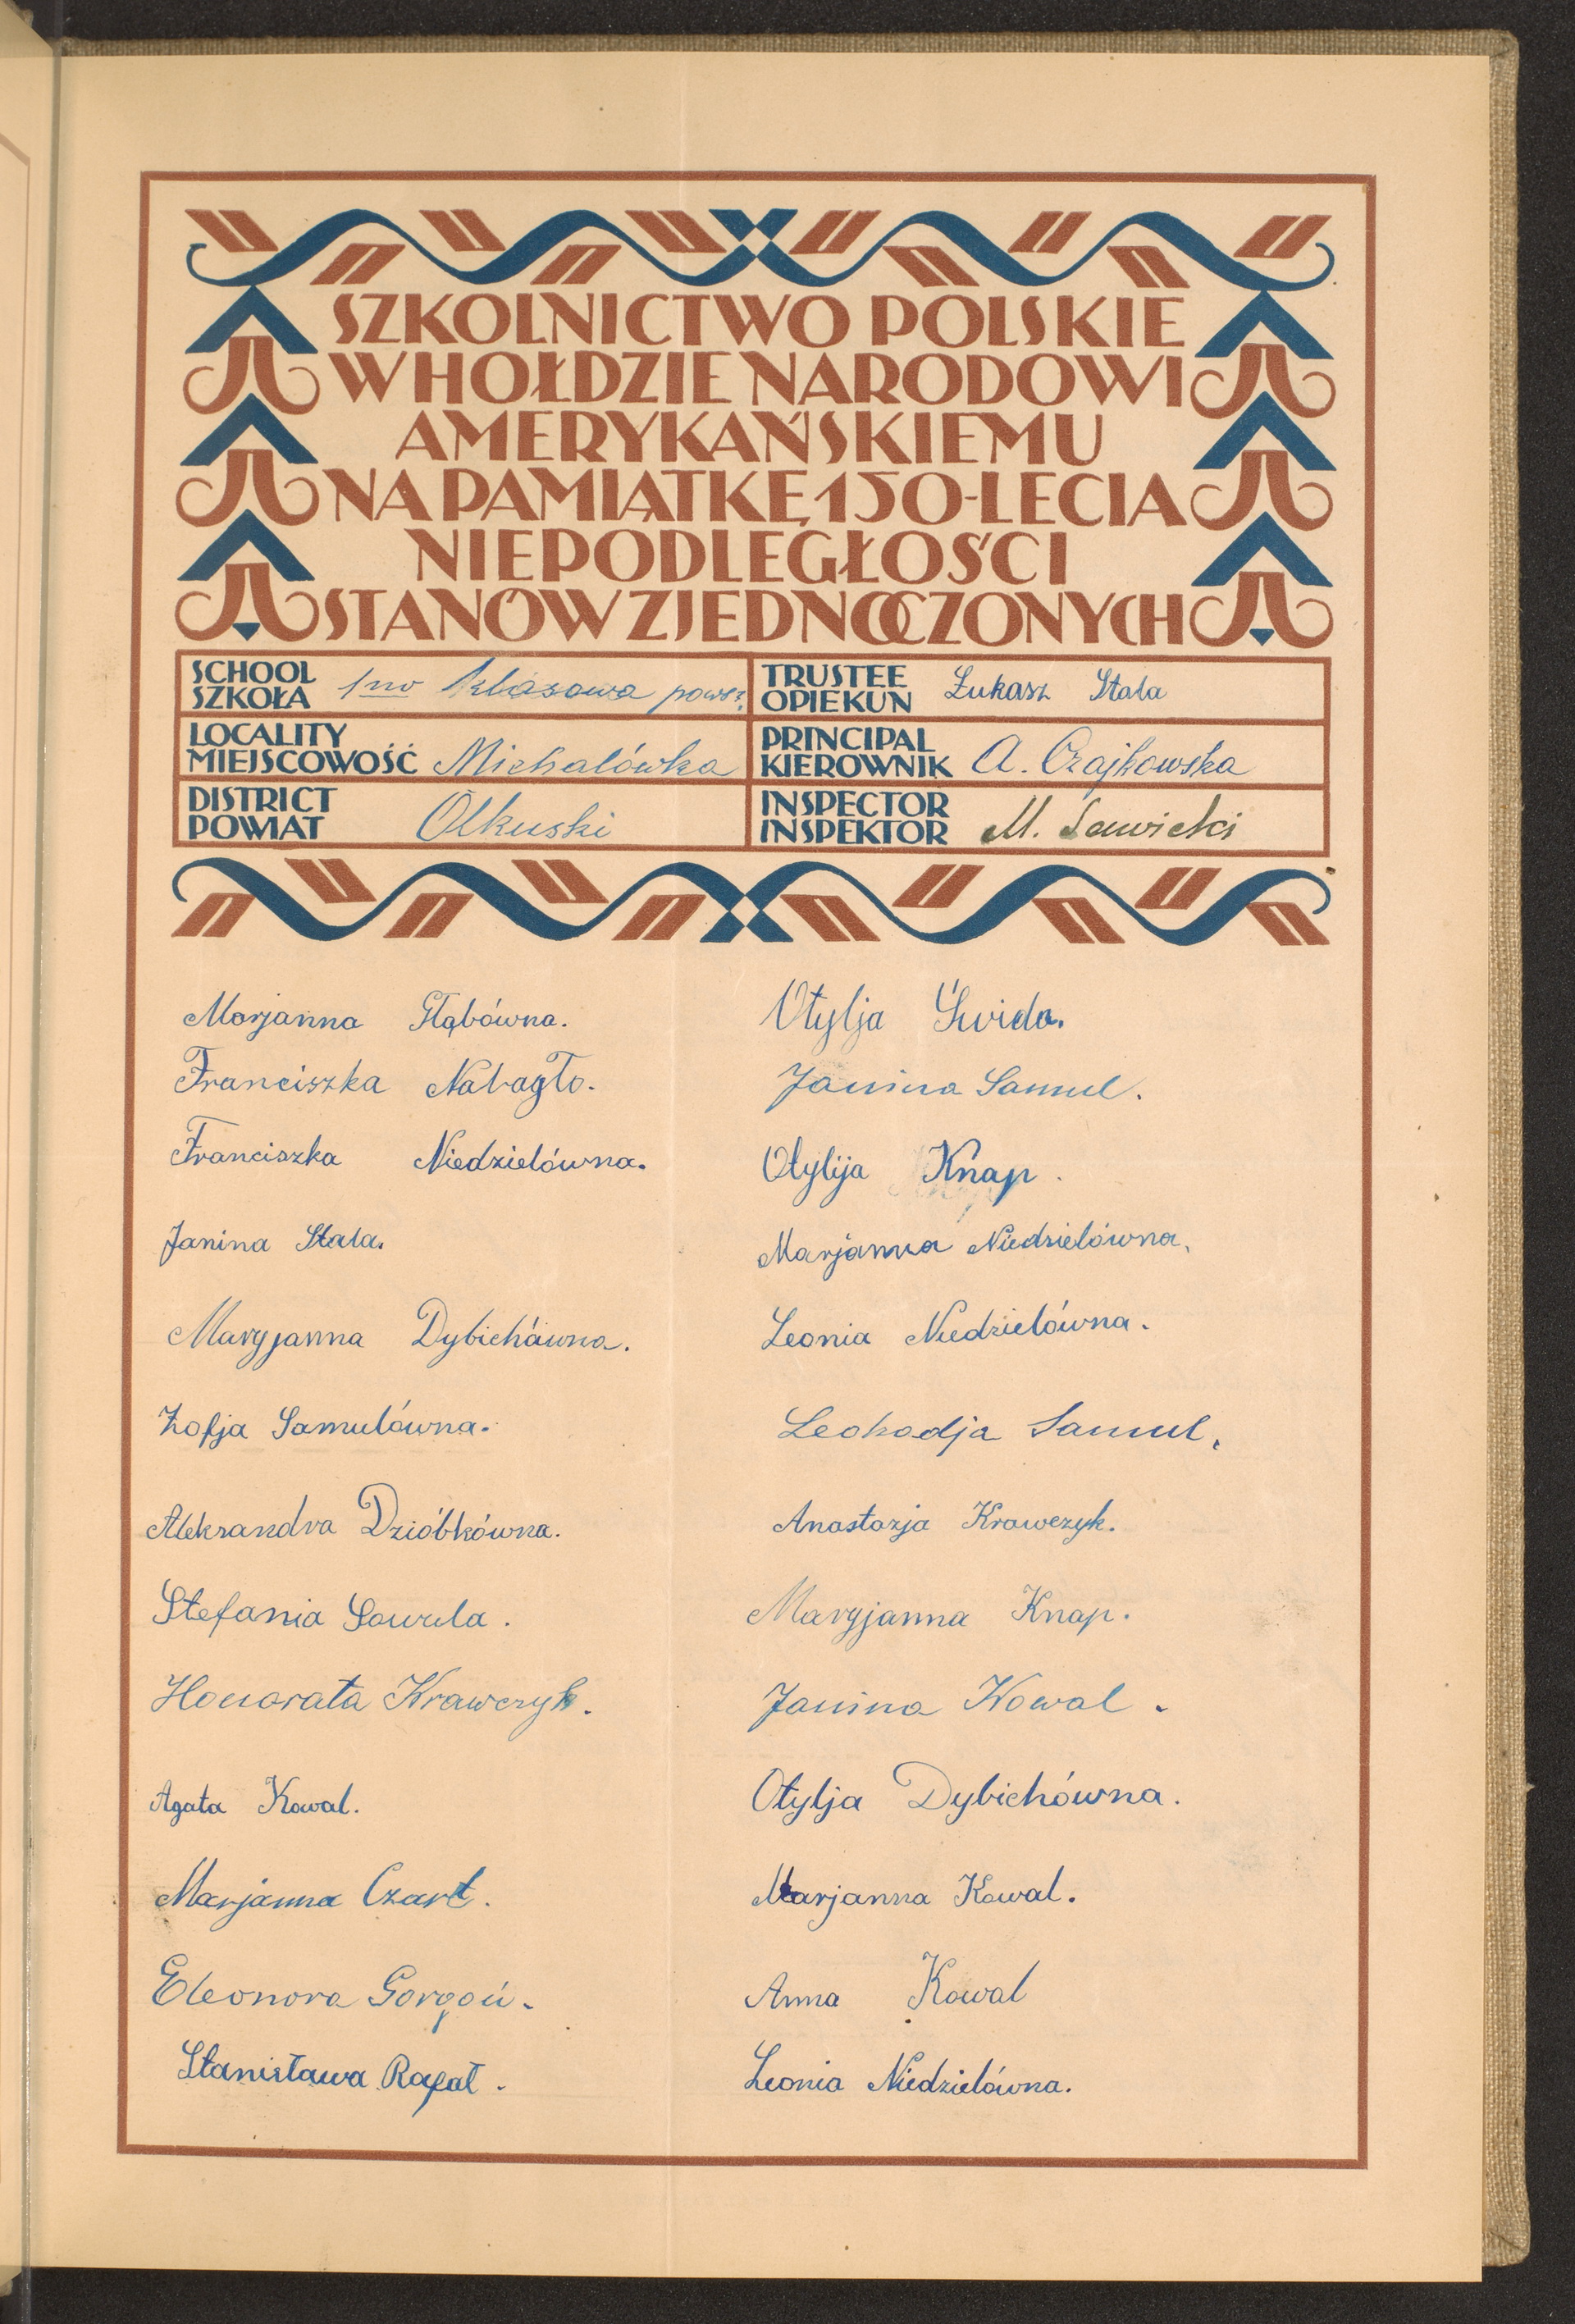 SZKOLNICTWO POLSKIE
W HOŁDZIE NARODOWI
AMERYKAŃSKIEMU
NA PAMIĄTKĘ 150-LECIA
NIEPODLEGŁOŚCI
STANÓW ZJEDNOCZONYCH
SCHOOL
SZKOŁA 1no klasowa powsz.
TRUSTEE
OPIEKUN Łukasz Stala
LOCALITY
MIEJSCOWOŚĆ Michałówka
PRINCIPAL
KIEROWNIK A. Czajkowska
DISTRICT
POWIAT Olkuski
INSPECTOR
INSPEKTOR M. Sawicki
Marjanna Głąbówna.
Franciszka Nabagło.
Franciszka Niedzielówna.
Janina Stala.
Maryjanna Dybichówna.
Zofja Samulówna.
Aleksandra Dzióbkówna.
Stefania Sowula.
Honorata Krawczyk.
Agata Kowal.
Marjanna Czart.
Eleonora Gorgoń.
Stanisława Rafał.
Otylja Świda.
Janina Samul.
Otylija Knap.
Marjanna Niedzielówna.
Leonia Niedzielówna.
Leokadja Samul.
Anastazja Krawczyk.
Maryjanna Knap.
Janina Kowal.
Otylja Dybichówna.
Marjanna Kowal.
Anna Kowal
Leonia Niedzielówna.